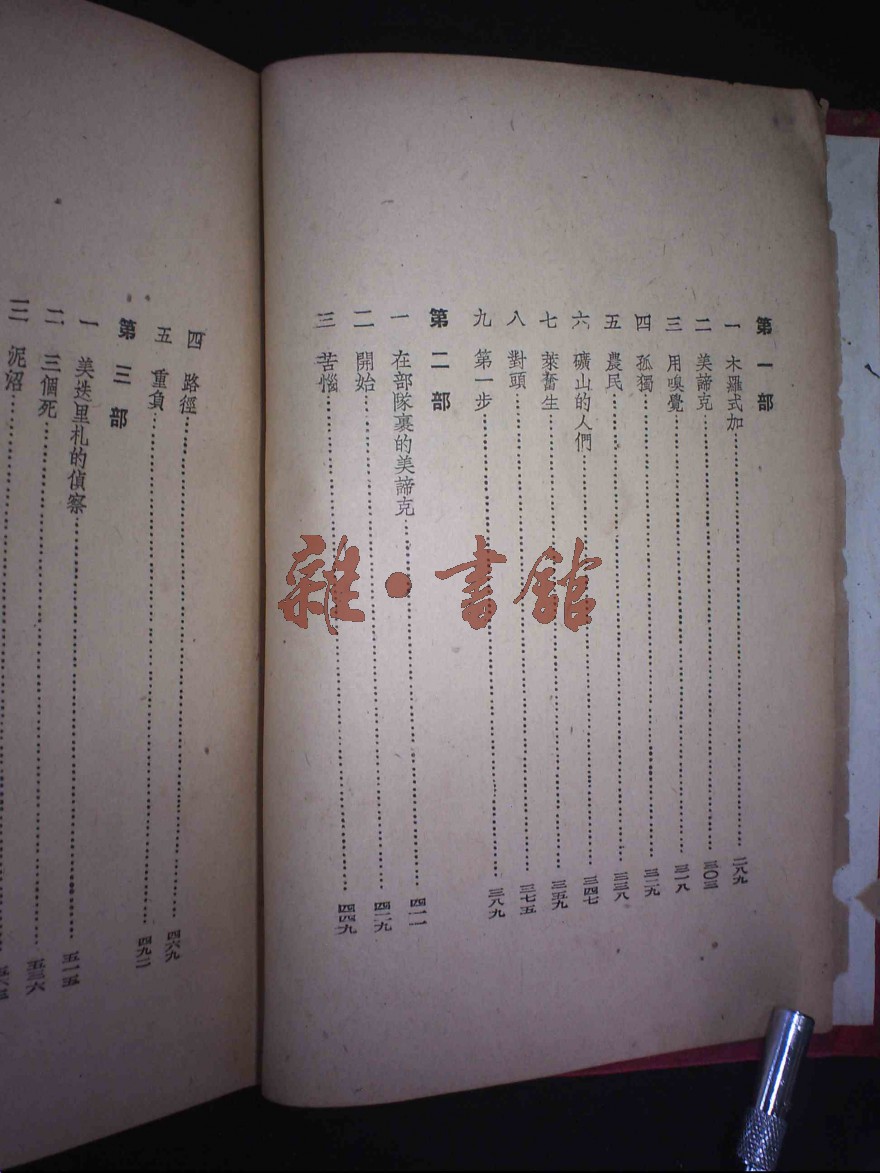 第一部
一 木羅式加……二八九
二 美諦克……三〇三
三 用嗅覺……三一八
四 孤獨……三二九
五 農民……三三八
六 礦山的人們……三四七
七 萊奮生……三五九
八 對頭……三七五
九 第一步……三八九
第二部
一 在部隊裏的美諦克……四一一
二 開始……四二九
三 苦惱……四四九
四 路徑……四六九
五 重負……四九二
第三部
一 美迭里札的偵察……五一五
二 三個死……五三六
三 泥沼……
雜·書館